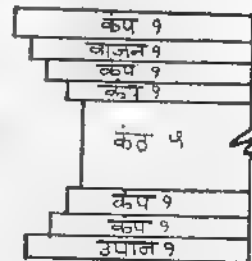 कंप १
वाजन १
कंप १
कंप १
कंठ ५
कंप १
कंप १
उपान १